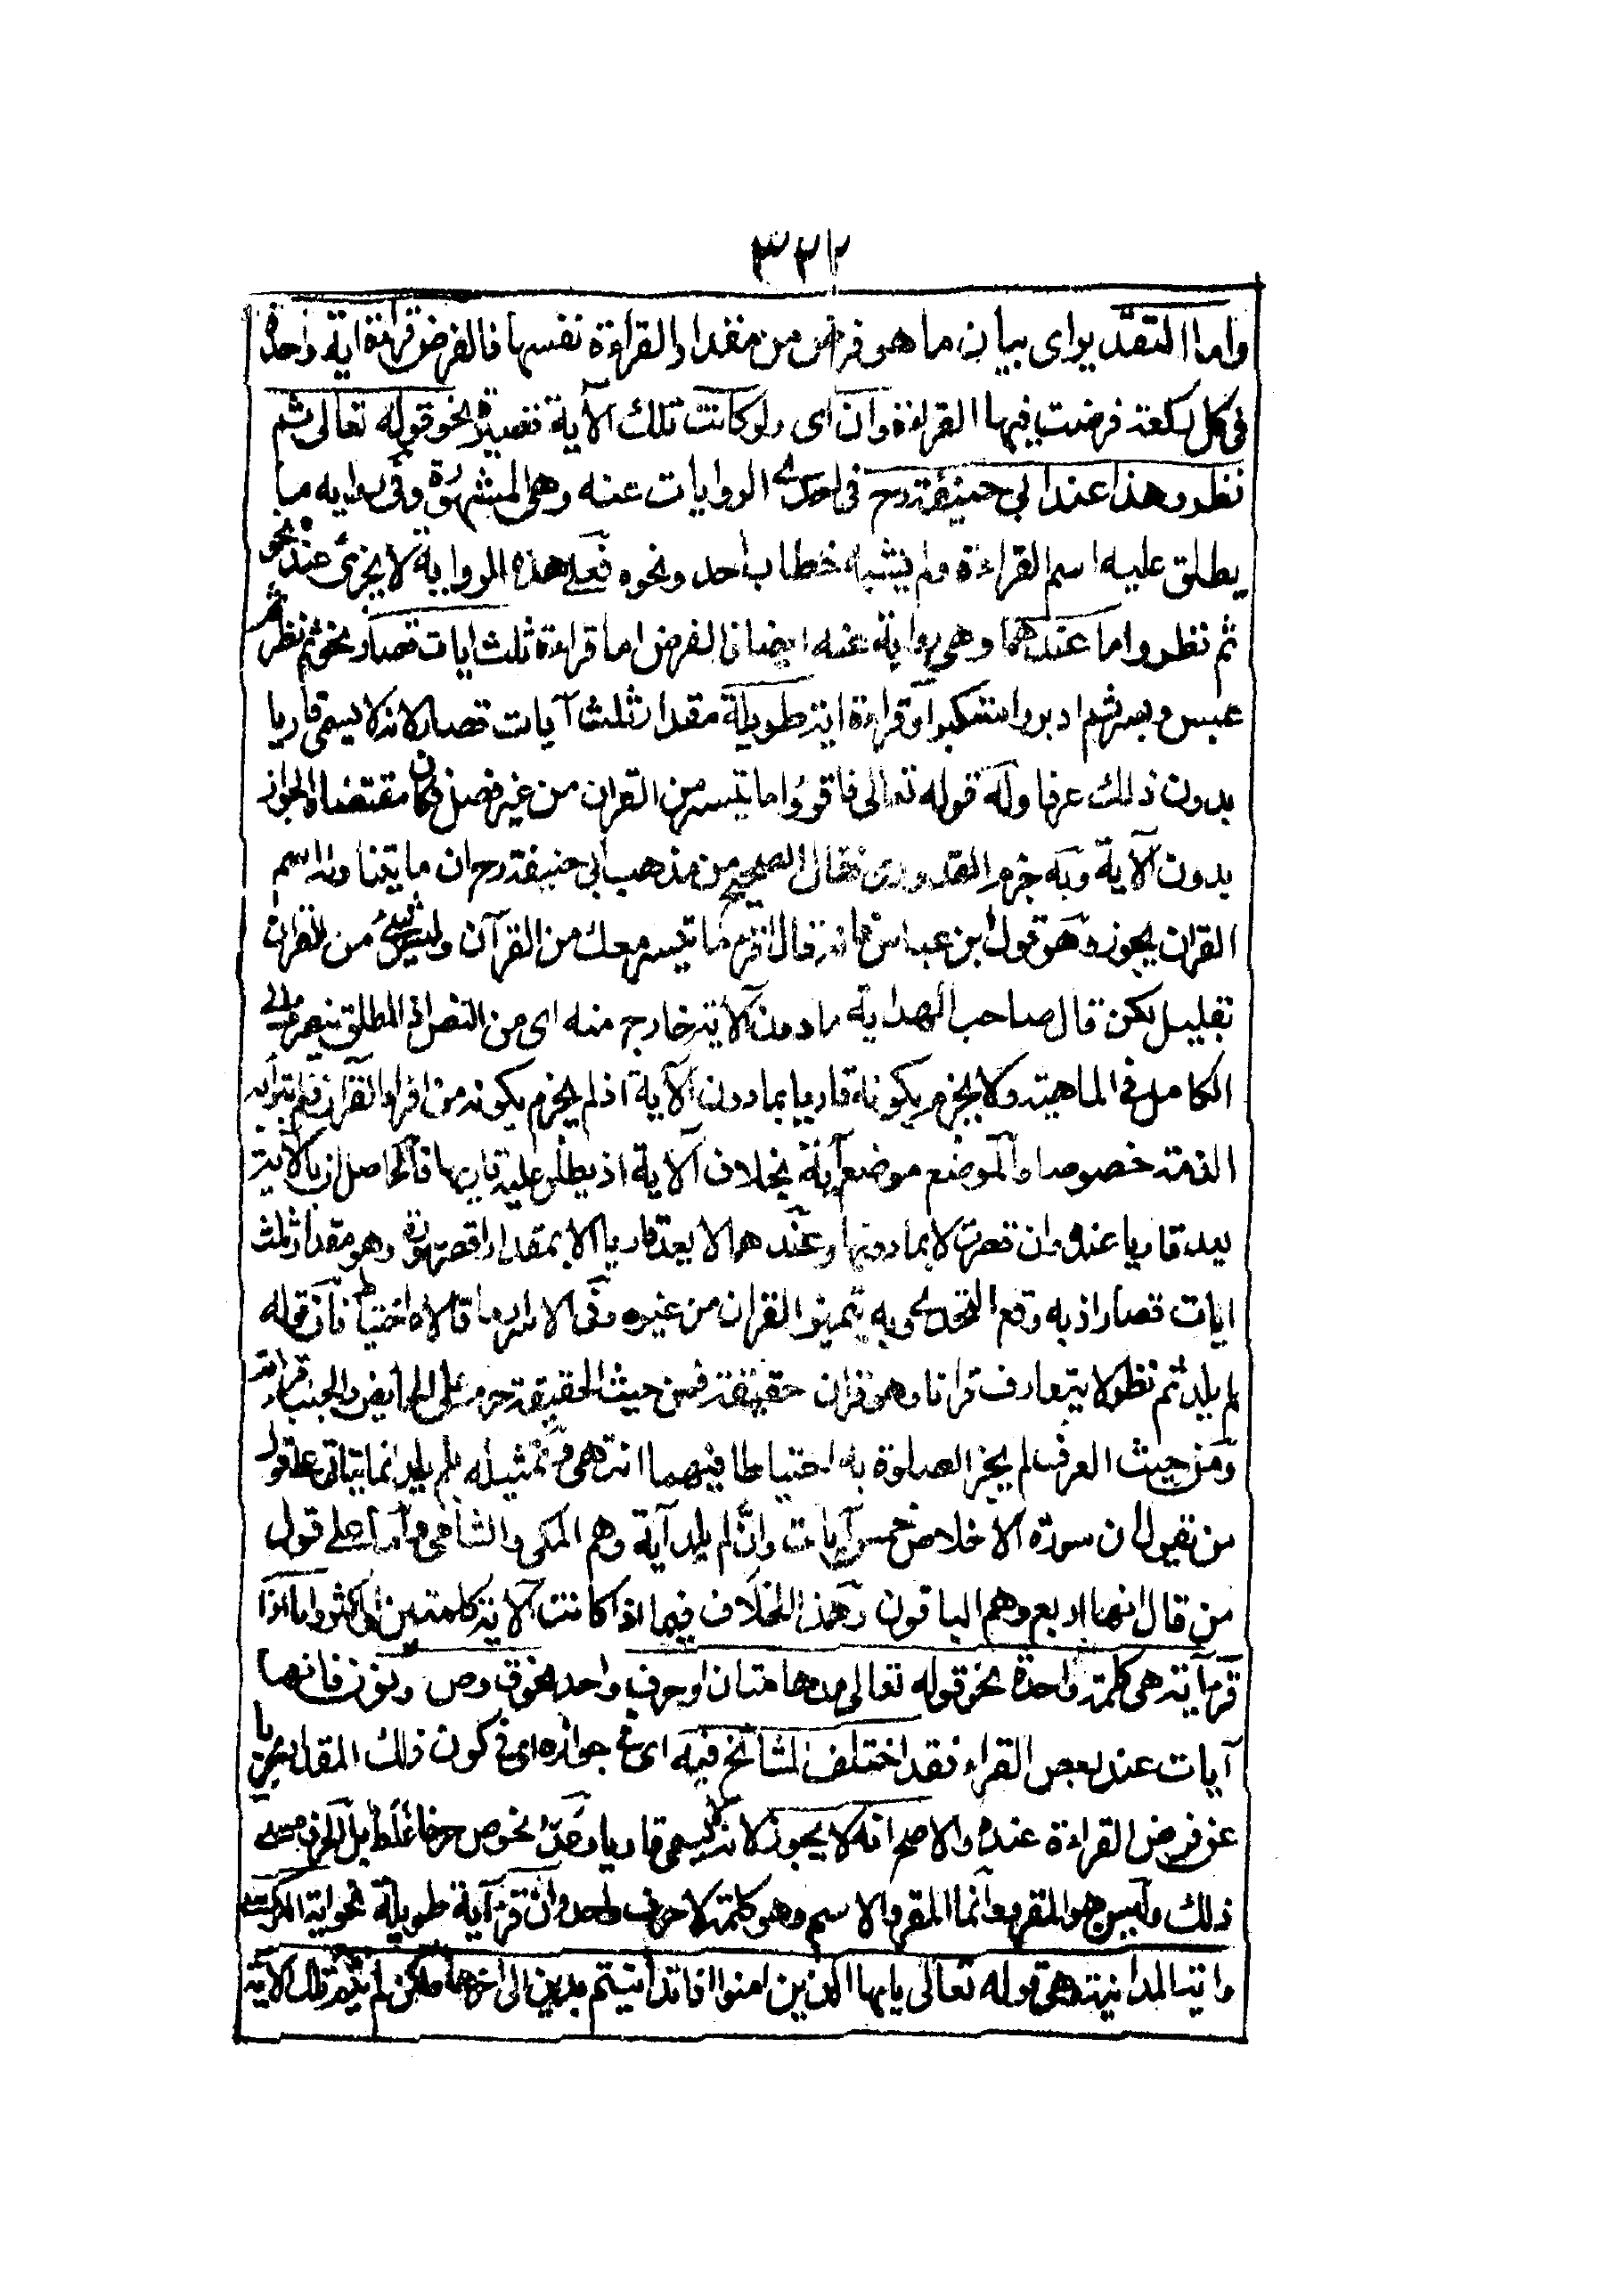 ٣٢٢
واما التقدير اى بيان ما هو فرض من مقدار القراءة نفسها فالفرض قراءة اية واحدة
فى كل ركعة فرضت فيها القراءة وان اى ولو كانت تلك الآية قصيرة نحو قوله تعالى ثم
نظر وهذا عند ابى حنيفة رح فى احدى الروايات عنه وهى المشهورة وفى رواية ما
يطلق عليه اسم القراءة ولم يشبه خطاب احد ونحوه فعلى هذه الرواية لا يجزئ عنده نحو
ثم نظر واما عندهما وهى رواية عنه ايضا فالفرض اما قراءة ثلث ايات قصار نحو ثم نظر ثم
عبس وبسر ثم ادبر واستكبر او قراءة اية طويلة مقدار ثلث آيات قصار لانه لا يسمى قاريا
بدون ذلك عرفا وله قوله تعالى فاقرؤا ما تيسر من القران من غير فصل فكان مقتضاه الجواز
بدون الآية وبه جزم القدورى فقال الصحيح من مذهب ابى حنيفة رح ان ما يتناوله اسم
القران يجوز وهو قول ابن عباس فانه قال اقرء ما تيسر معك من القرآن وليس شئ من القران
بقليل لكن قال صاحب الهداية ما دون الآية خارج منه اى من النص اذ المطلق ينصرف الى
الكامل فى الماهية ولا يجزم بكونه قاريا بما دون الآية اذ لم يجزم بكونه من افراد القرآن فلم تبرأ به
الذمة خصوصا والموضع موضع بخلاف الآية اذ يطلق عليه قاريها فالحاصل ان بالآية
يعد قاريا عنده وان قصرت لا بما دونها وعندهما لا يعد قاريا الا بمقدار اقصر سورة وهو مقدار ثلث
ايات قصار اذ به وقع التحدى وبه تميز القران من غيره وفى الاسرار ما قالاه احتياط فان قوله
لم يلد ثم نظر لا يتعارف قرانا وهو قران حقيقة فمن حيث الحقيقة حرم على الحايض والجنب قراءته
ومن حيث العرف لم يجز الصلوة به احتياطا فيهما انتهى وتمثيله بلم يلد انما يتاتى على قول
من يقول ان سورة الاخلاص خمس آيات وان لم يلد آية وهم المكى والشامى واما على قول
من قال انها اربع وهم الباقون وهذا الخلاف فيما اذا كانت الآية كلمتين او اكثر واما اذا
قرء آية هى كلمة واحدة نحو قوله تعالى مدهامتان او حرف واحد نحو ق وص ون فانها
آيات عند بعض القراء فقد اختلف المشائخ فيه اى فى جوازه اى فى كون ذلك المقدار مجزيا
عن فرض القراءة عنده والاصح انه لا يجوز لانه لا يسمى قاريا وعد نحو ص حرفا غلط بل الحرف مسمى
ذلك وليس هو المقروء وانما المقروء الاسم وهو كلمة لا حرف واحد وان قرء آية طويلة نحو اية الكرسى
واية المداينة هى قوله تعالى يايها الذين امنوا اذا تداينتم بدين الى اخرها ولكن لم تلك الآية